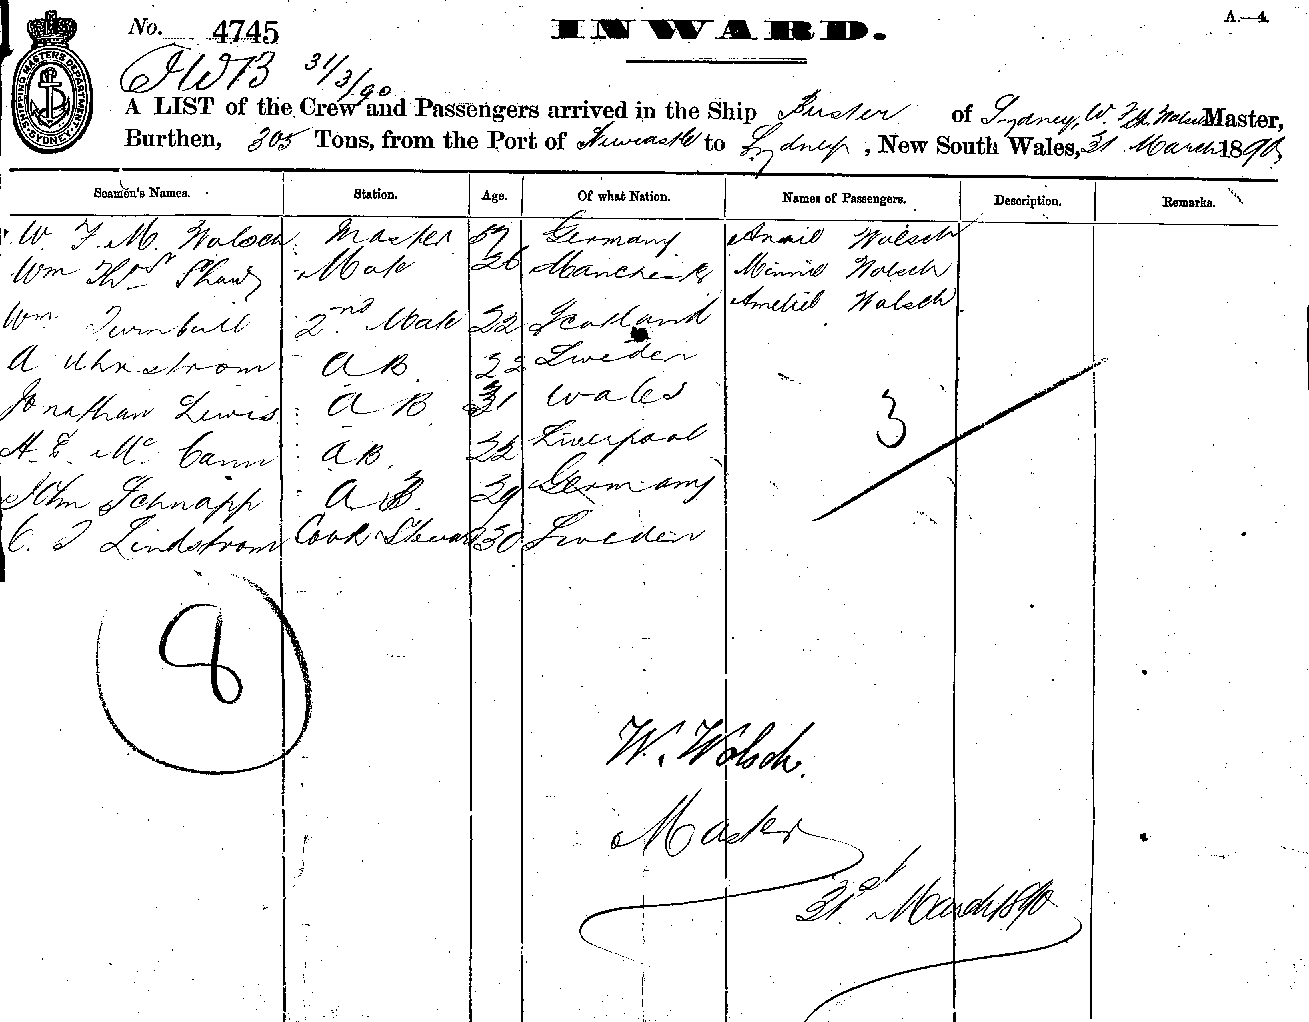 No. 4745
INWARD.
A.—4.
SHIPPING MASTERS DEPARTMENT SYDNEY
JWB 31/3/90
A LIST of the Crew and Passengers arrived in the Ship Buster of Sydney, W. Master,
Burthen, 305 Tons, from the Port of Newcastle to Sydney, New South Wales, 31 March 1890
Seamen's Names. Station. Age. Of what Nation. Names of Passengers. Description. Remarks.
W. F. M. Wolsch Master 57 Germany Annie Wolsch
Wm Thos Shaw Mate 26 Manchester Minnie Wolsch
Amelie Wolsch
Wm Turnbull 2nd Mate 22 Scotland
A AB 22 Sweden
Jonathan Lewis AB 31 Wales
3
H. E. Mc Cann AB 22 Liverpool
John Schnapp AB 29 Germany
C. J Lindstrom Cook & Steward 30 Sweden
8
W. Wolsch.
Master
31st March 1890